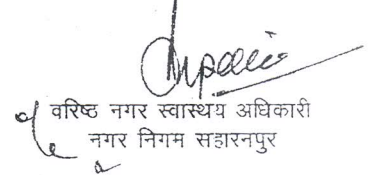 वरिष्ठ नगर स्वास्थय अधिकारी
नगर निगम सहारनपुर